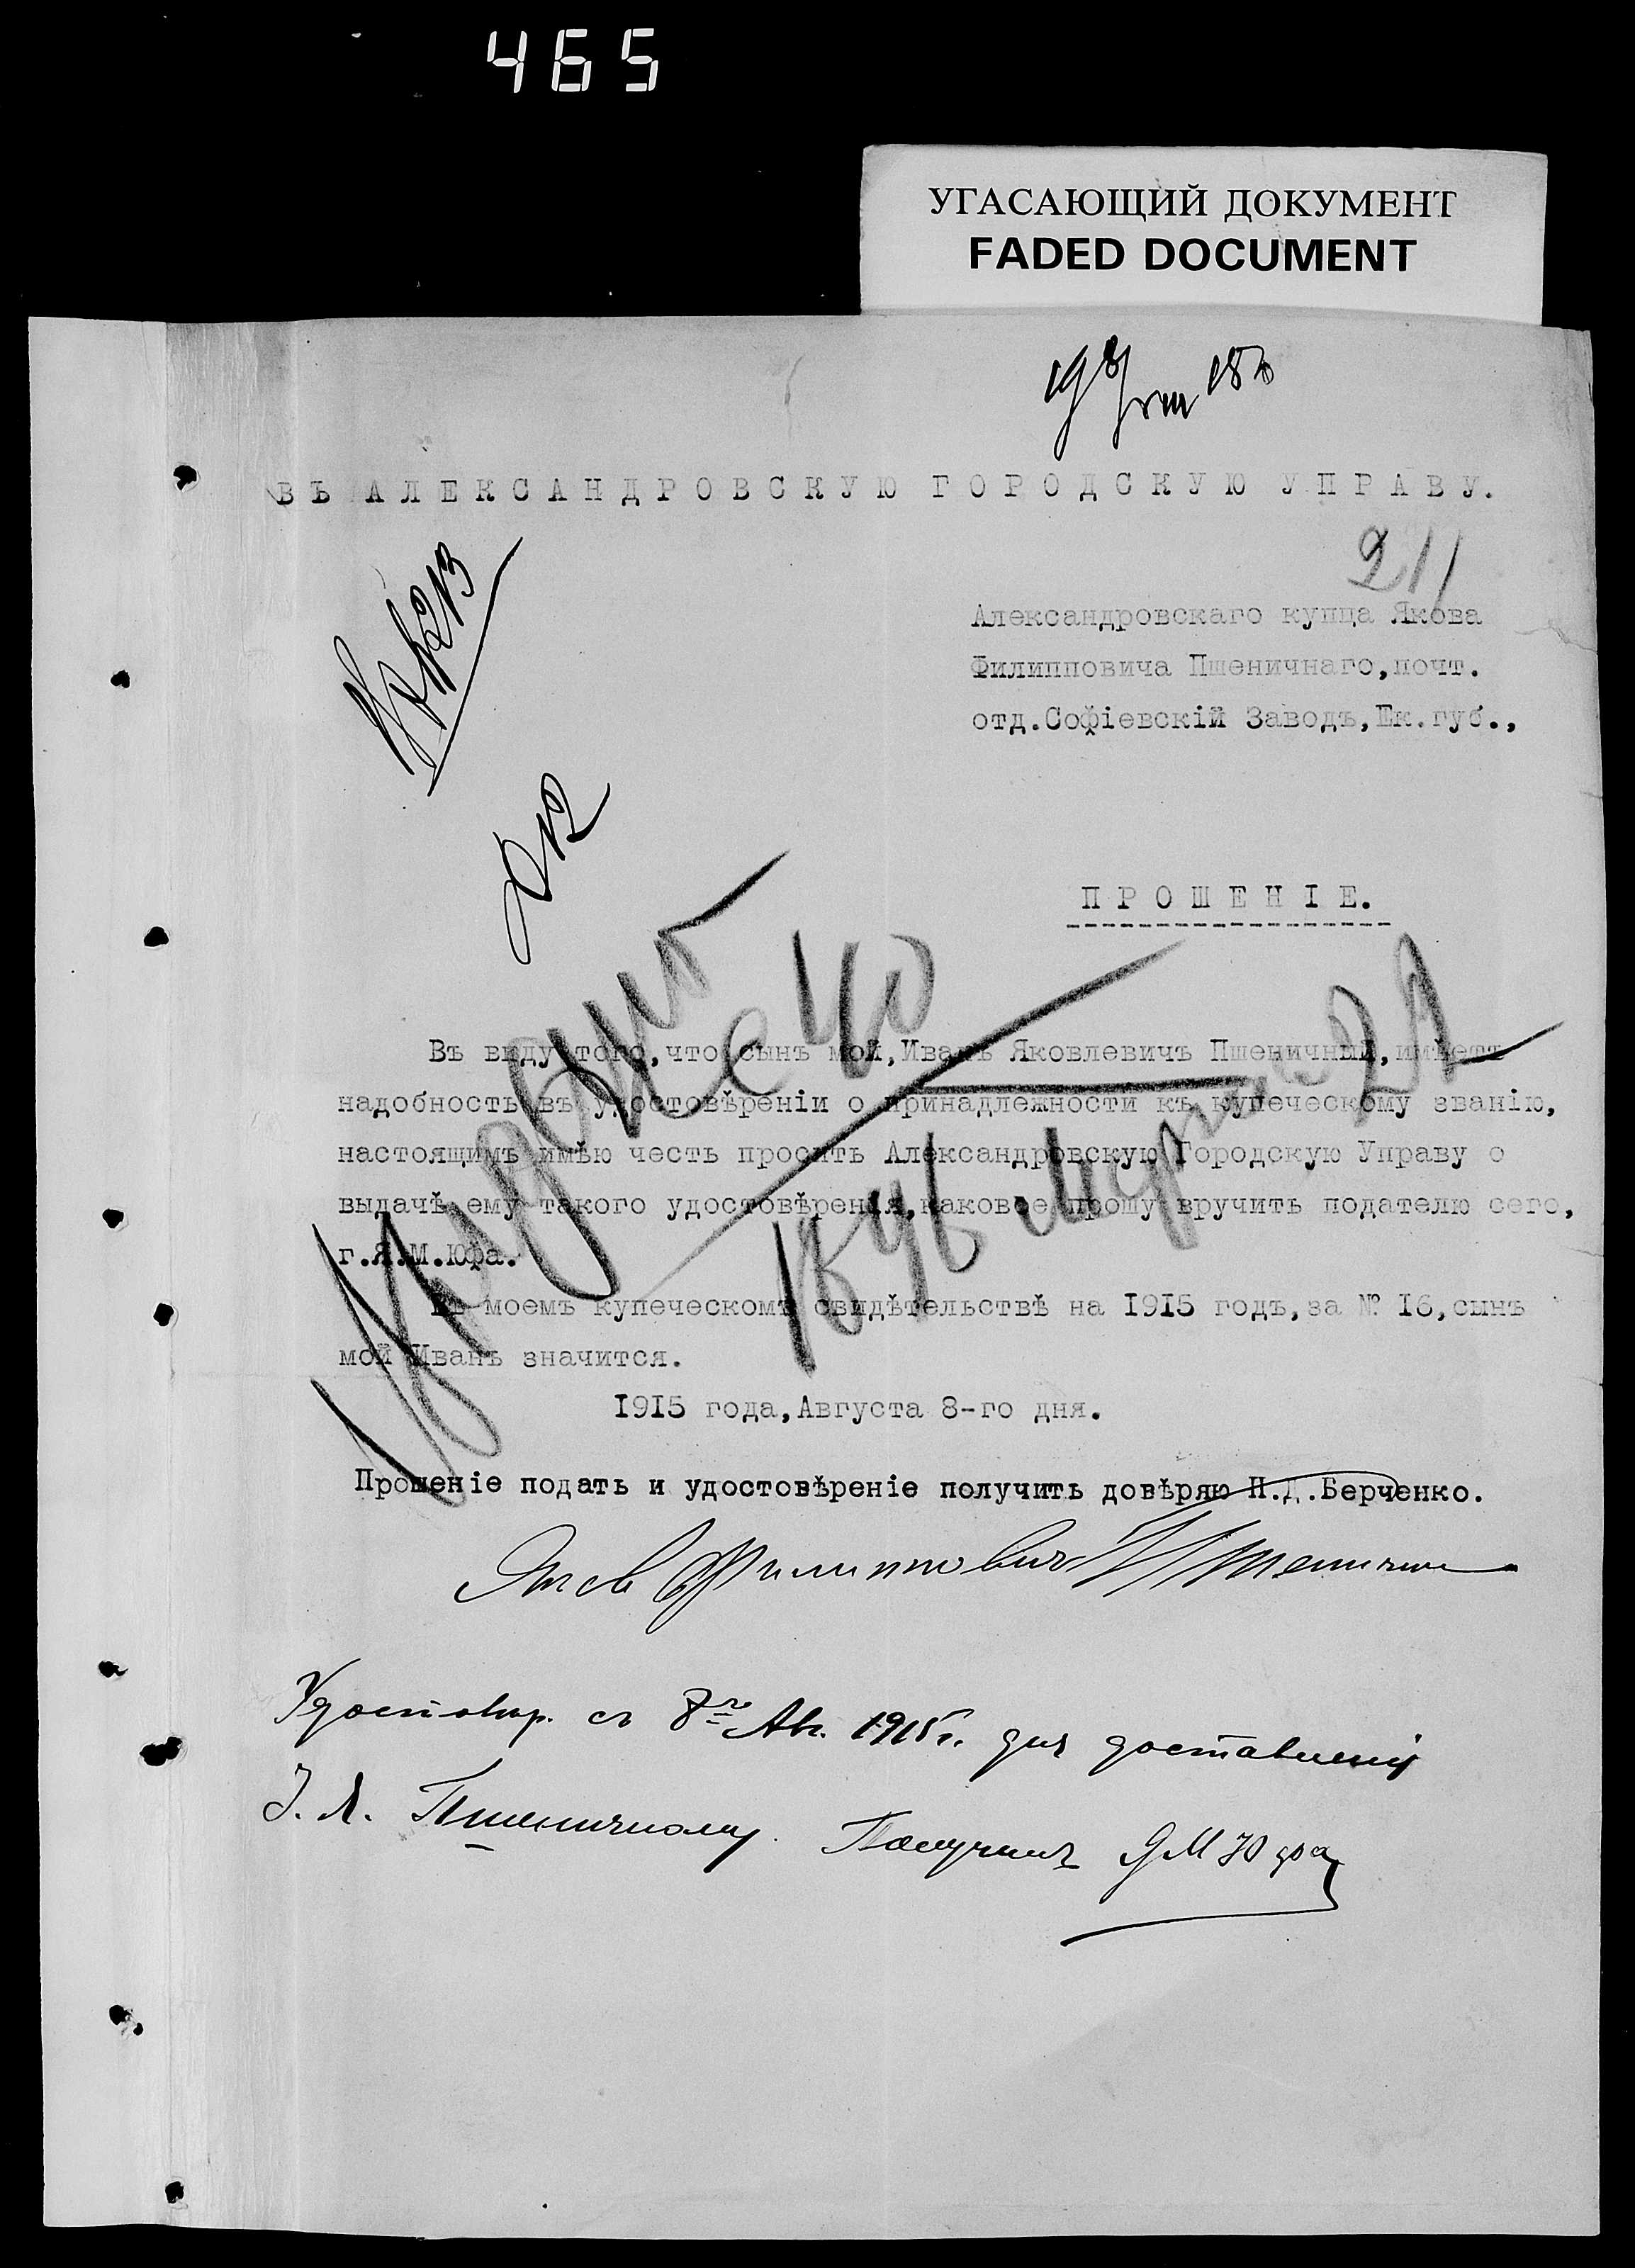 465
УГАСАЮЩИЙ ДОКУМЕНТ
FADED DOCUMENT
ВЪ АЛЕКСАНДРОВСКУЮ ГОРОДСКУЮ УПРАВУ.
211
Александровскаго купца Якова
Филипповича Пшеничнаго, почт.
отд. Софіевскій Заводъ, Ек. губ.,
ПРОШЕНІЕ.
Въ виду того, что сынъ мой, Иванъ Яковлевичъ Пшеничный, имѣетъ
надобность въ удостовѣреніи о принадлежности къ купеческому званію,
настоящимъ имѣю честь просить Александровскую Городскую Управу о
выдачѣ ему такого удостовѣренія, каковое прошу вручить подателю сего,
г. Я. М. Юфа.
Въ моемъ купеческомъ свидѣтельствѣ на 1915 годъ, за № 16, сынъ
мой Иванъ значится.
1915 года, Августа 8-го дня.
Прошеніе подать и удостовѣреніе получить довѣряю Н. Д. Берченко.
Яков Филиппович Пшеничный
Удостовѣр. от 8го Авг. 1915 г. для доставленія
І. Я. Пшеничному. Получилъ Я М Юфа